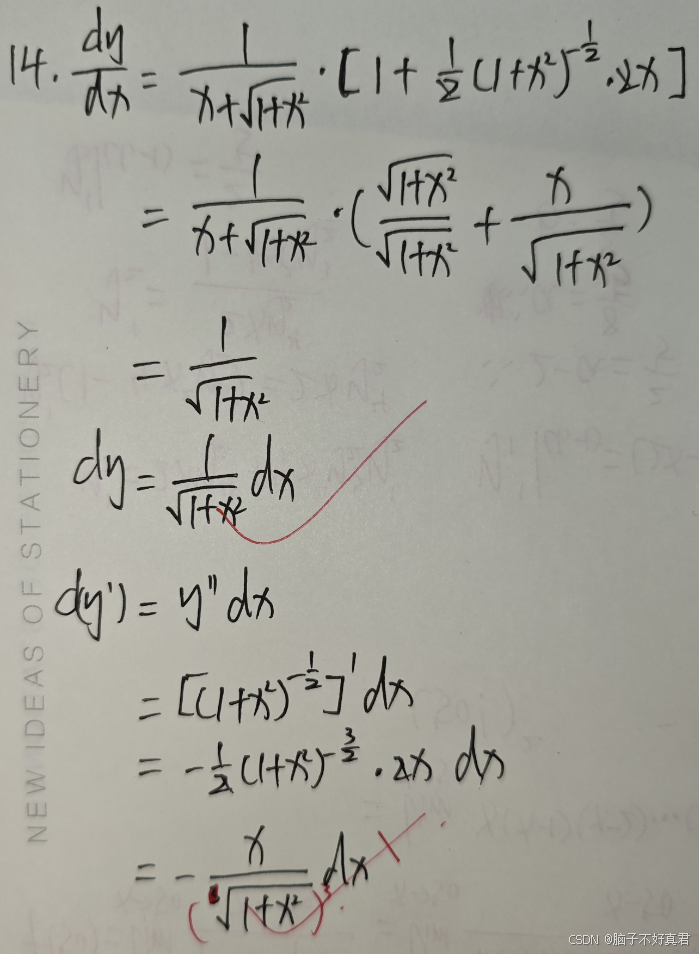 14. dy/dx = 1/(x+√(1+x²)) · [1 + 1/2 (1+x²)^(-1/2) · 2x]
= 1/(x+√(1+x²)) · (√(1+x²)/√(1+x²) + x/√(1+x²))
= 1/√(1+x²)
dy = 1/√(1+x²) dx
d(y') = y'' dx
= [(1+x²)^(-1/2)]' dx
= -1/2 (1+x²)^(-3/2) · 2x dx
= - x/(√(1+x²))³ dx
NEW IDEAS OF STATIONERY
CSDN @脑子不好真君